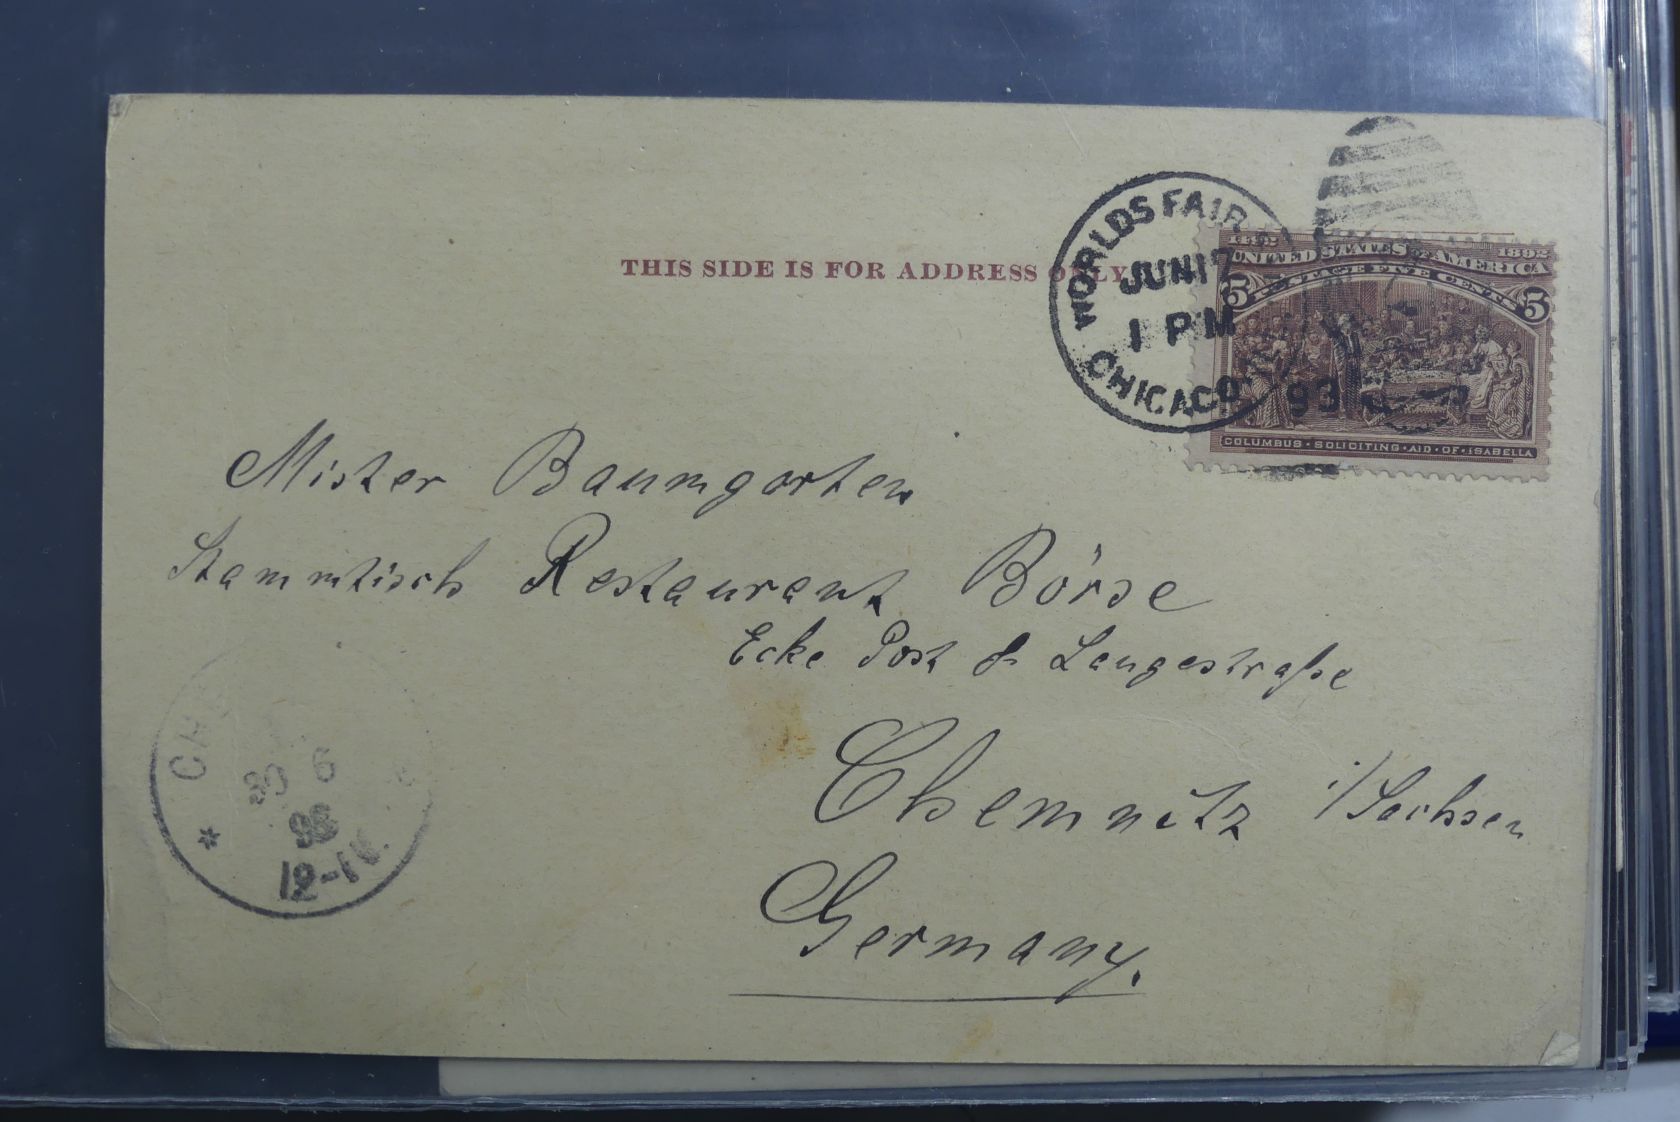 THIS SIDE IS FOR ADDRESS ONLY
WORLDS FAIR
JUN 17
1 PM
93
CHICAGO
1492 1892
UNITED STATES OF AMERICA
POSTAGE FIVE CENTS
5 5
COLUMBUS·SOLICITING·AID·OF·ISABELLA
Mister Baumgarten
Stammtisch Restaurant Börse
Ecke Post & Langestraße
Chemnitz i/Sachsen
Germany.
30 6
93
*
12-1N.